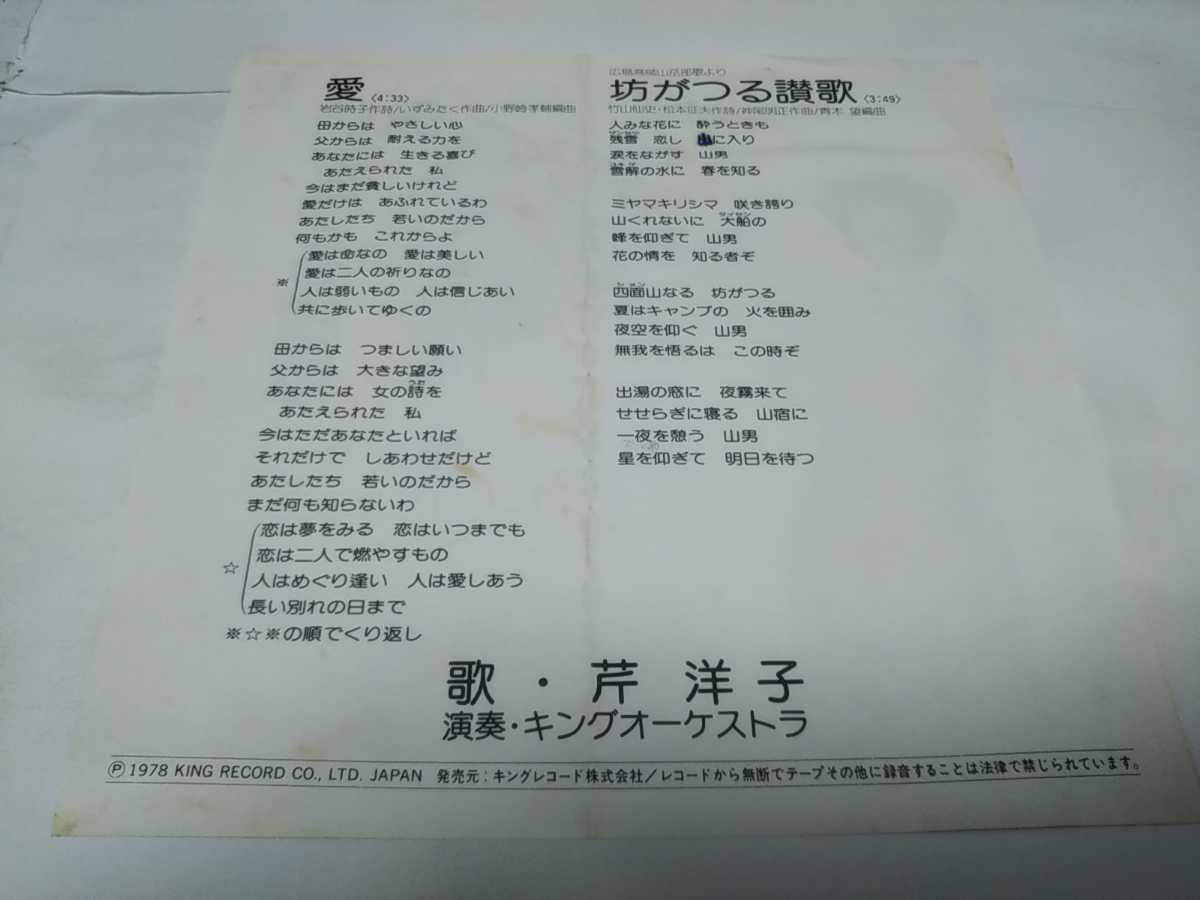 愛〈4:33〉
岩谷時子作詩/いずみたく作曲/小野崎孝輔編曲
母からは　やさしい心
父からは　耐える力を
あなたには　生きる喜び
あたえられた　私
今はまだ貧しいけれど
愛だけは　あふれているわ
あたしたち　若いのだから
何もかも　これからよ
愛は命なの　愛は美しい
愛は二人の祈りなの
※
人は弱いもの　人は信じあい
共に歩いてゆくの
母からは　つましい願い
父からは　大きな望み
うた
あなたには　女の詩を
あたえられた　私
今はただあなたといれば
それだけで　しあわせだけど
あたしたち　若いのだから
まだ何も知らないわ
恋は夢をみる　恋はいつまでも
恋は二人で燃やすもの
☆
人はめぐり逢い　人は愛しあう
長い別れの日まで
※☆※の順でくり返し
広島高師山岳部歌より
坊がつる讃歌〈3:49〉
竹山仙史・松本征夫作詩/神尾明正作曲/青木　望編曲
人みな花に　酔うときも
ザンセツ
残雪　恋し　山に入り
涙をながす　山男
ユキゲ
雪解の水に　春を知る
ミヤマキリシマ　咲き誇り
タイセン
山くれないに　大船の
峰を仰ぎて　山男
花の情を　知る者ぞ
シメン
四面山なる　坊がつる
夏はキャンプの　火を囲み
夜空を仰ぐ　山男
無我を悟るは　この時ぞ
出湯の窓に　夜霧来て
せせらぎに寝る　山宿に
一夜を憩う　山男
星を仰ぎて　明日を待つ
歌・芹　洋　子
演奏・キングオーケストラ
Ⓟ1978 KING RECORD CO., LTD. JAPAN　発売元：キングレコード株式会社／レコードから無断でテープその他に録音することは法律で禁じられています。